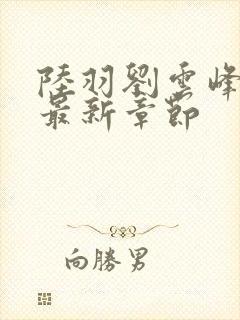 陸羽劉雲峰
最新章節
向勝男